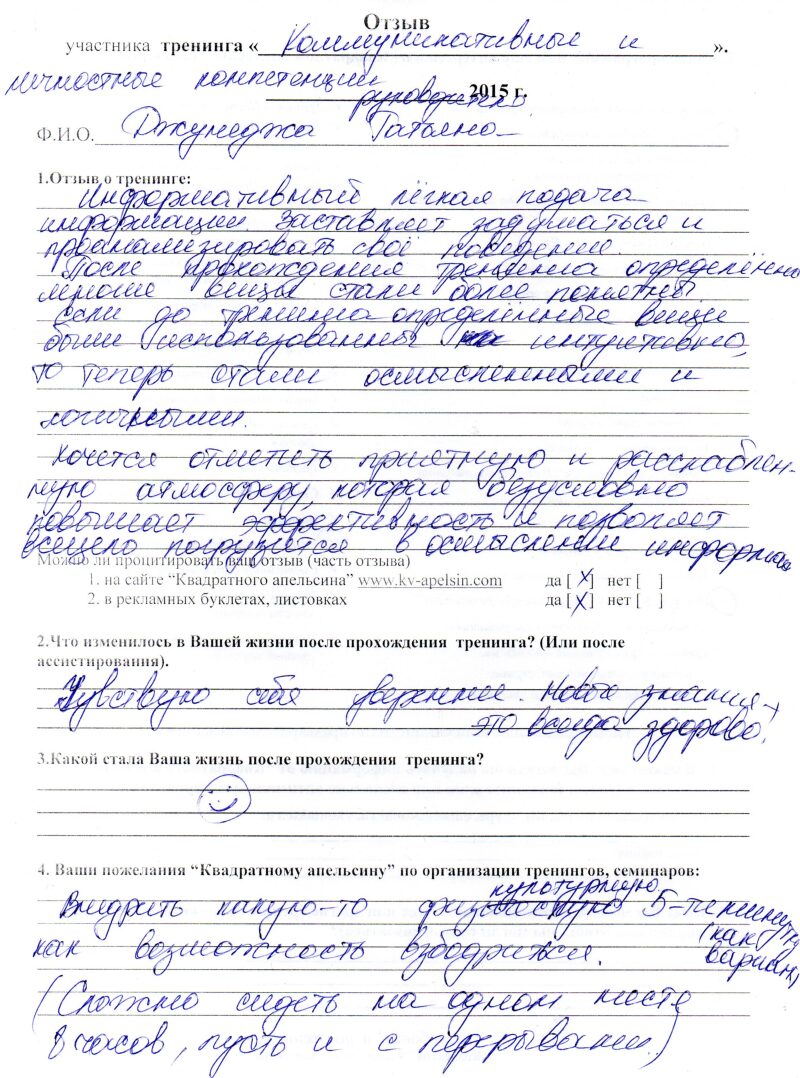 Отзыв
участника тренинга « Коммуникативные и ».
личностные компетенции
руководителя 2015 г.
Ф.И.О. Джунеджа Татьяна
1.Отзыв о тренинге:
Информативный лёгкая подача
информации. Заставляет задуматься и
проанализировать своё поведение.
После прохождения тренинга определённо
многие вещи стали более понятны.
Если до тренинга определённые вещи
были использованны интуитивно,
то теперь стали осмысленными и
логичными.
Хочется отметить приятную и расслаблен-
ную атмосферу, которая безусловно
повышает эффективность и позволяет
всецело погрузится в осмыслении информац
Можно ли процитировать ваш отзыв (часть отзыва)
1. на сайте “Квадратного апельсина” www.kv-apelsin.com да [ X ] нет [ ]
2. в рекламных буклетах, листовках да [ X ] нет [ ]
2.Что изменилось в Вашей жизни после прохождения тренинга? (Или после
ассистирования).
Чувствую себя уверенней. Новые знания –
это всегда здорово!
3.Какой стала Ваша жизнь после прохождения тренинга?
4. Ваши пожелания “Квадратному апельсину” по организации тренингов, семинаров:
культурную
Внедрить какую-то физ 5-тиминутку
как возможность взбодрится. (как вариант)
(Сложно сидеть на одном месте
8 часов, пусть и с перерывами.)